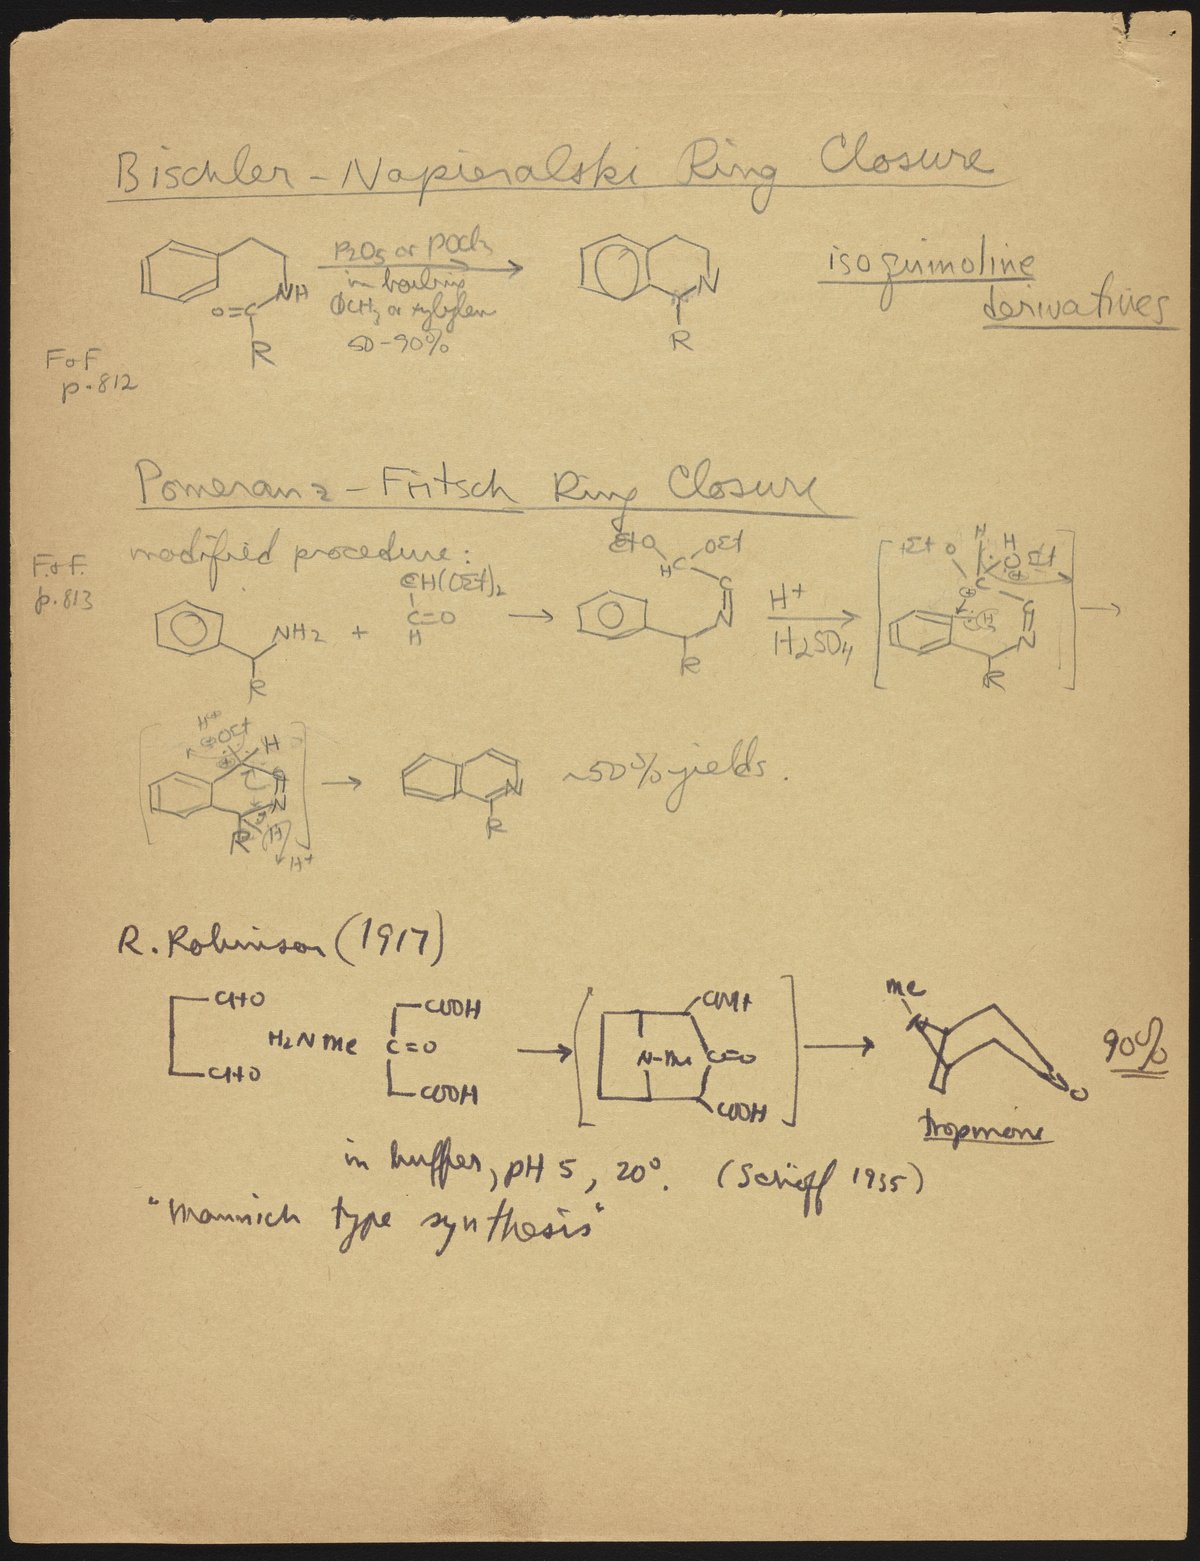 Bischler-Napieralski Ring Closure
P2O5 or POCl3
in boiling
ΦCH3 or xylylen
50-90%
NH
O=C
R
N
R
isoquinoline
derivatives
F&F
p.812
Pomeranz-Fritsch Ring Closure
modified procedure:
F.&F.
p.813
NH2
R
+
CH(OEt)2
C=O
H
EtO
OEt
H C
C
N
R
H+
H2SO4
EtO
H
H
OEt
C
C
H
N
R
H+
OEt
H
N
R
H
H+
N
R
~50% yields.
R. Robinson (1917)
CHO
CHO
H2NMe
COOH
C=O
COOH
COOH
N-Me
C=O
COOH
Me
N
O
90%
tropinone
in buffer, pH 5, 20°. (Schöpf 1935)
"Mannich type synthesis"